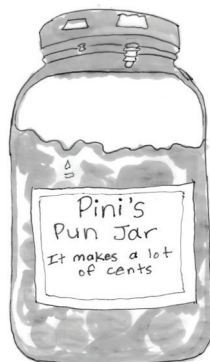 Pini's
Pun Jar
It makes a lot
of cents